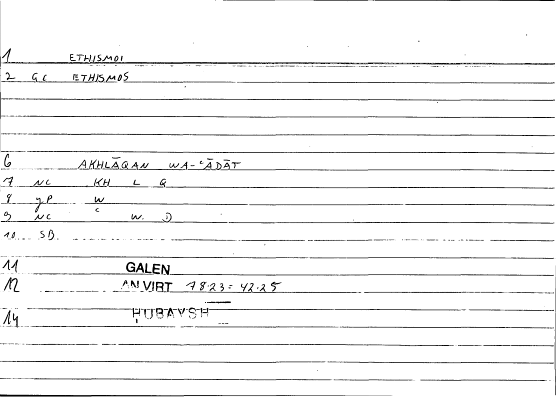 1 ETHISMOI
2 GC ETHISMOS
6 AKHLĀQAN WA-ʿĀDĀT
7 NC KH L Q
8 gP W
9 NC ʿ W D
10 SB
11 GALEN
12 AN VIRT 78.23 = 42.25
14 ḤUBAYSH